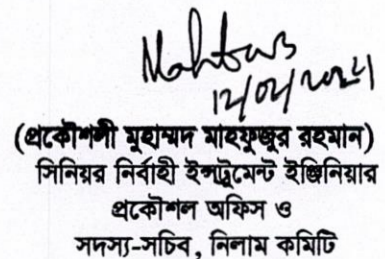 (প্রকৌশলী মুহাম্মদ মাহফুজুর রহমান)
সিনিয়র নির্বাহী ইন্সট্রুমেন্ট ইঞ্জিনিয়ার
প্রকৌশল অফিস ও
সদস্য-সচিব, নিলাম কমিটি